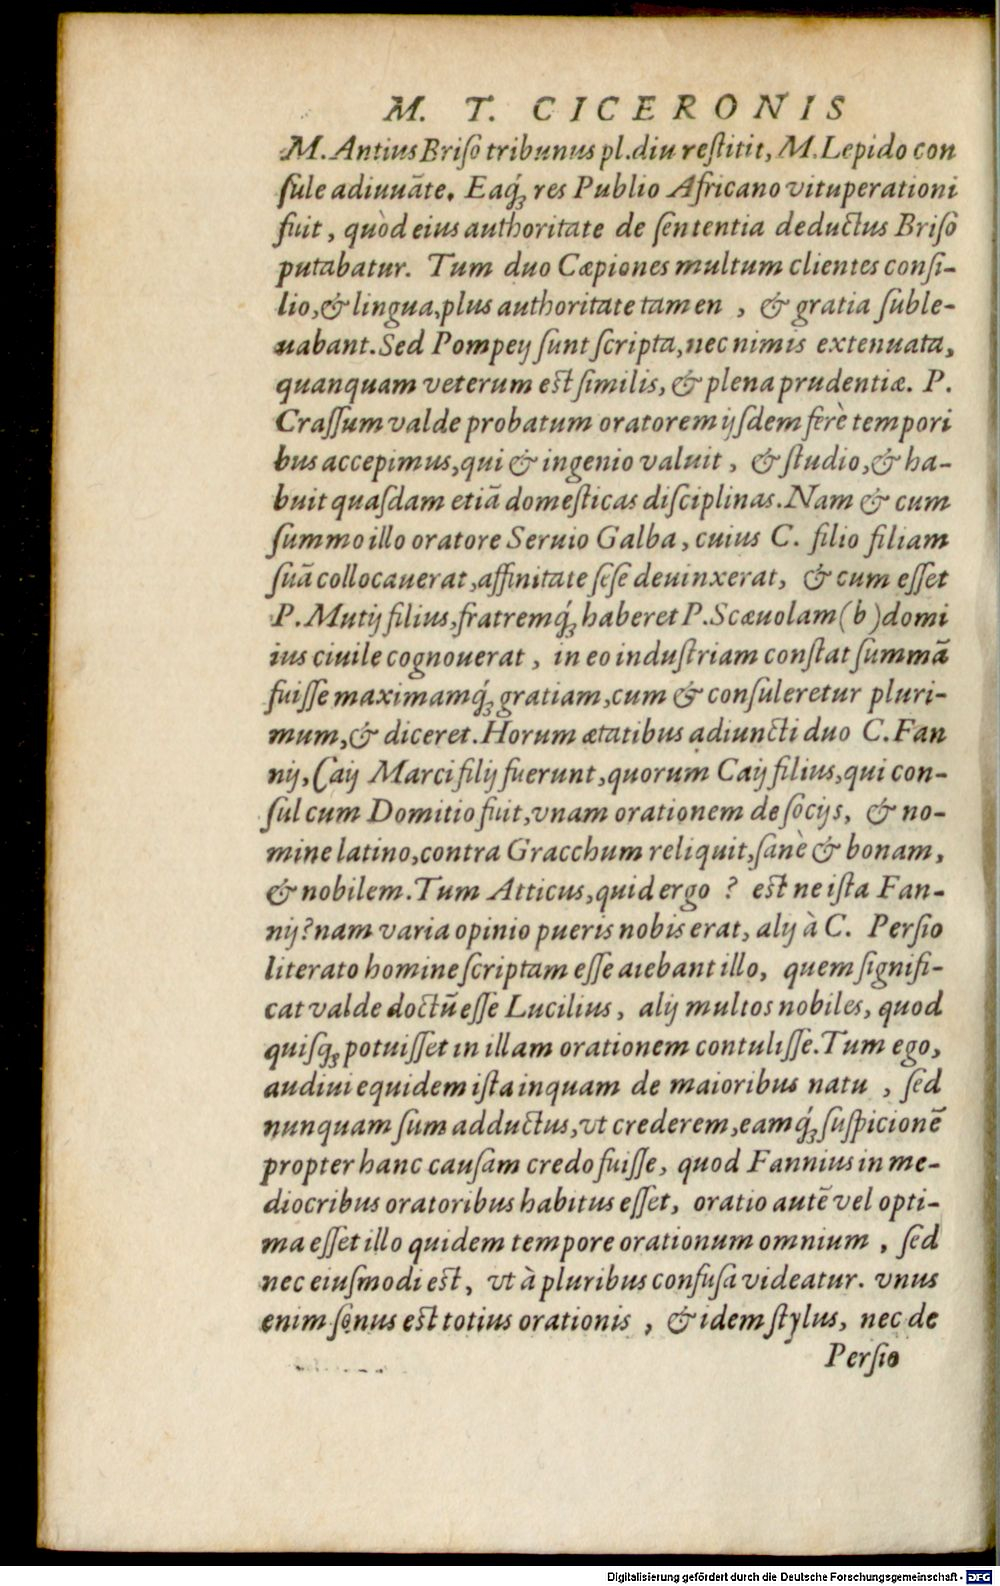 M. T. CICERONIS
M. Antius Briſo tribunus pl. diu reſtitit, M. Lepido con
ſule adiuuāte. Eaq́ꝫ res Publio Africano vituperationi
fuit, quòd eius authoritate de ſententia deductus Briſo
putabatur. Tum duo Cæpiones multum clientes conſi-
lio, & lingua, plus authoritate tamen, & gratia ſuble-
uabant. Sed Pompeij ſunt ſcripta, nec nimis extenuata,
quanquam veterum est ſimilis, & plena prudentiæ. P.
Craſſum valde probatum oratorem ijſdem ferè tempori
bus accepimus, qui & ingenio valuit, & ſtudio, & ha-
buit quaſdam etiā domeſticas diſciplinas. Nam & cum
ſummo illo oratore Seruio Galba, cuius C. filio filiam
ſuā collocauerat, affinitate ſeſe deuinxerat, & cum eſſet
P. Mutij filius, fratremq́ꝫ haberet P. Scæuolam (b) domi
ius ciuile cognouerat, in eo induſtriam conſtat ſummā
fuiſſe maximamq́ꝫ gratiam, cum & conſuleretur pluri-
mum, & diceret. Horum ætatibus adiuncti duo C. Fan
nij, Caij Marci filij fuerunt, quorum Caij filius, qui con-
ſul cum Domitio fuit, vnam orationem de ſocijs, & no-
mine latino, contra Gracchum reliquit, ſanè & bonam,
& nobilem. Tum Atticus, quid ergo? est ne iſta Fan-
nij? nam varia opinio pueris nobis erat, alij à C. Perſio
literato homine ſcriptam eſſe aiebant illo, quem ſignifi-
cat valde doctū eſſe Lucilius, alij multos nobiles, quod
quiſqꝫ potuiſſet in illam orationem contuliſſe. Tum ego,
audiui equidem iſta inquam de maioribus natu, ſed
nunquam ſum adductus, vt crederem, eamq́ꝫ ſuſpicionē
propter hanc cauſam credo fuiſſe, quod Fannius in me-
diocribus oratoribus habitus eſſet, oratio autē vel opti-
ma eſſet illo quidem tempore orationum omnium, ſed
nec eiuſmodi est, vt à pluribus confuſa videatur. vnus
enim ſonus est totius orationis, & idem ſtylus, nec de
Perſio
Digitalisierung gefördert durch die Deutsche Forschungsgemeinschaft - DFG